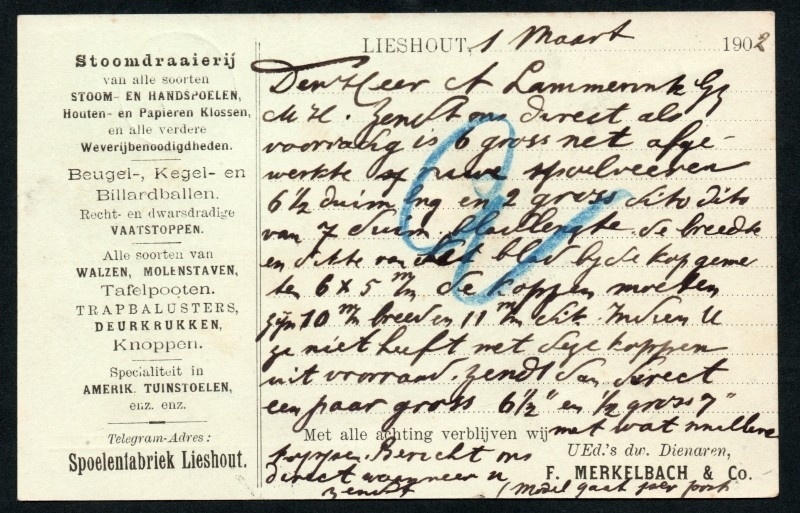 Stoomdraaierij
van alle soorten
STOOM- EN HANDSPOELEN,
Houten- en Papieren Klossen,
en alle verdere
Weverijbenoodigdheden.
Beugel-, Kegel- en
Billardballen.
Recht- en dwarsdradige
VAATSTOPPEN.
Alle soorten van
WALZEN, MOLENSTAVEN,
Tafelpooten.
TRAPBALUSTERS,
DEURKRUKKEN,
Knoppen.
Specialiteit in
AMERIK. TUINSTOELEN,
enz. enz.
Telegram-Adres:
Spoelenfabriek Lieshout.
LIESHOUT, 1 Maart 1902
Den Heer A Lammerink
M H. Zendt ons direct als
voorradig is 6 gross net afge-
werkte ruwe spoelveeren
6 1/2 duim lng en 2 gross dito dito
van 7 duim bladlengte. de breedte
en dikte van het blad bij de kop geme
ten 6 x 5 m/m de koppen moeten
zijn 10 m/m breed en 11 m/m dik. Indien U
ze niet heeft met deze koppen
uit voorraad. zendt dan direct
een paar gross 6 1/2" en 1/2 gross 7"
met wat smallere
Met alle achting verblijven wij
koppen. Bericht ons
UEd.'s dw. Dienaren,
direct wanneer u
F. MERKELBACH & Co.
zendt (Model gaat per post